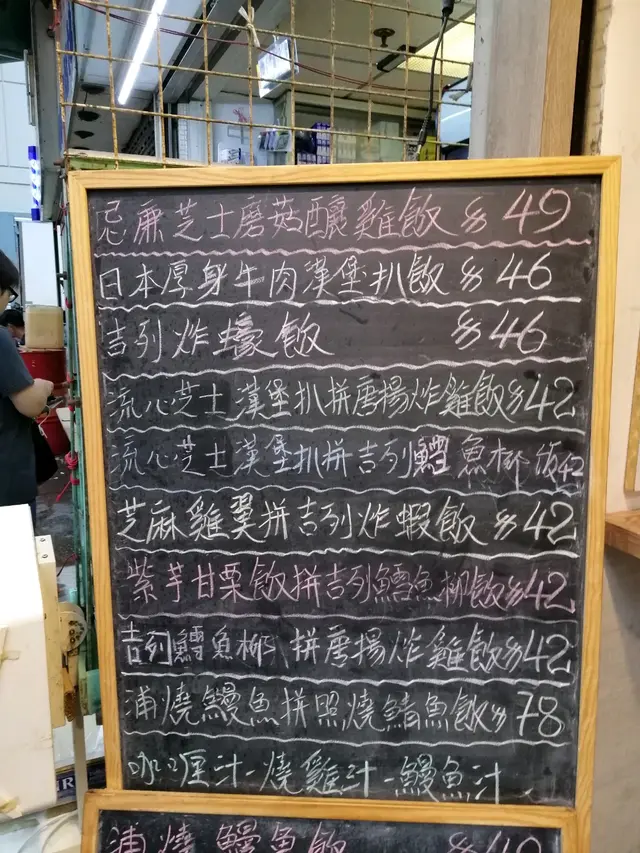 忌廉芝士磨菇釀雞飯 $49
日本厚身牛肉漢堡扒飯 $46
吉列炸蠔飯 $46
流心芝士漢堡扒拼唐揚炸雞飯$42
流心芝士漢堡扒拼吉列鱈魚柳飯42
芝麻雞翼拼吉列炸蝦飯$42
紫芋甘栗飯拼吉列鱈魚柳飯$42
吉列鱈魚柳拼唐揚炸雞飯$42
浦燒鰻魚拼照燒鯖魚飯$78
咖喱汁-燒雞汁-鰻魚汁
浦燒鰻魚飯